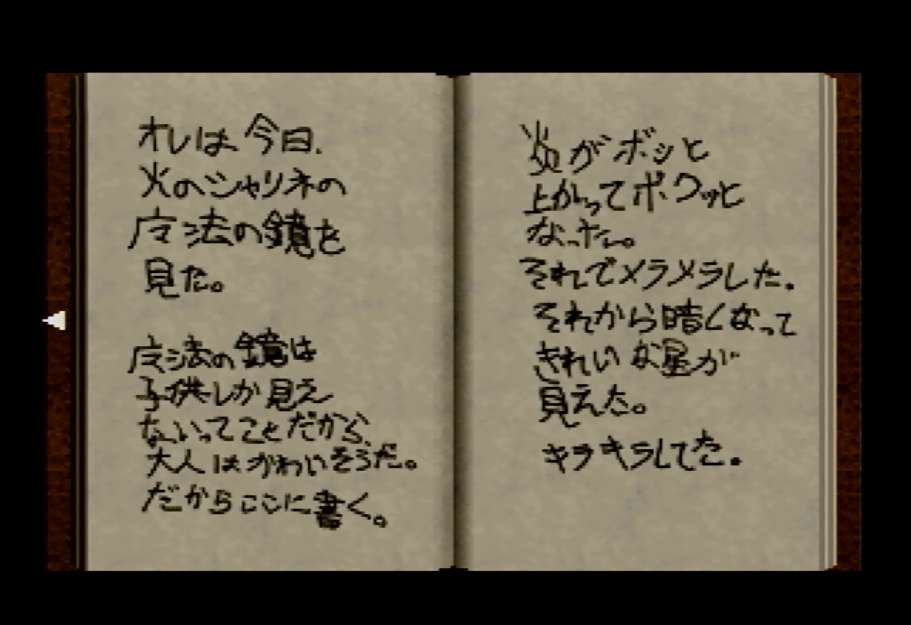 オレは、今日、
火のシャリネの
魔法の鏡を
見た。
魔法の鏡は
子供しか見え
ないってことだから、
大人はかわいそうだ。
だからここに書く。
炎がボッと
上がってボワッと
なった。
それでメラメラした。
それから暗くなって
きれいな星が
見えた。
キラキラしてた。